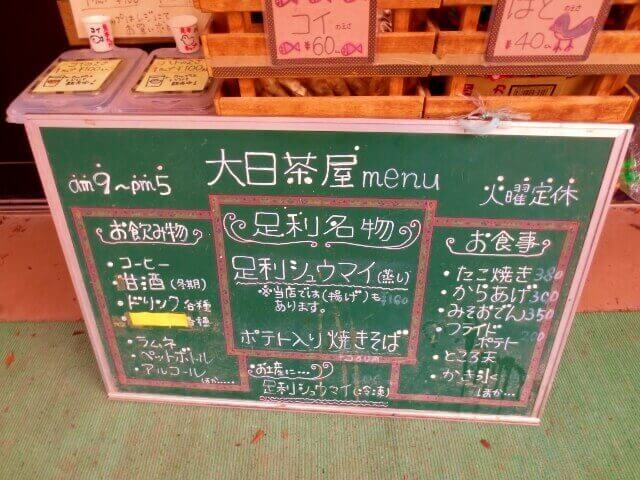 コイ のえさ
¥60
はと のえさ
¥40
大日茶屋 menu
am9～pm5
火曜定休
お飲み物
・コーヒー
・甘酒(冬期)
・ドリンク各種
・ラムネ
・ペットボトル
・アルコール
ほか……
足利名物
足利シュウマイ(蒸し)
※当店では(揚げ)も
あります。
ポテト入り焼きそば
お土産に…
足利シュウマイ(冷凍)
お食事
・たこ焼き 380
・からあげ 300
・みそおでん 350
・フライド
ポテト 200
・ところ天
・かき氷
ほか…